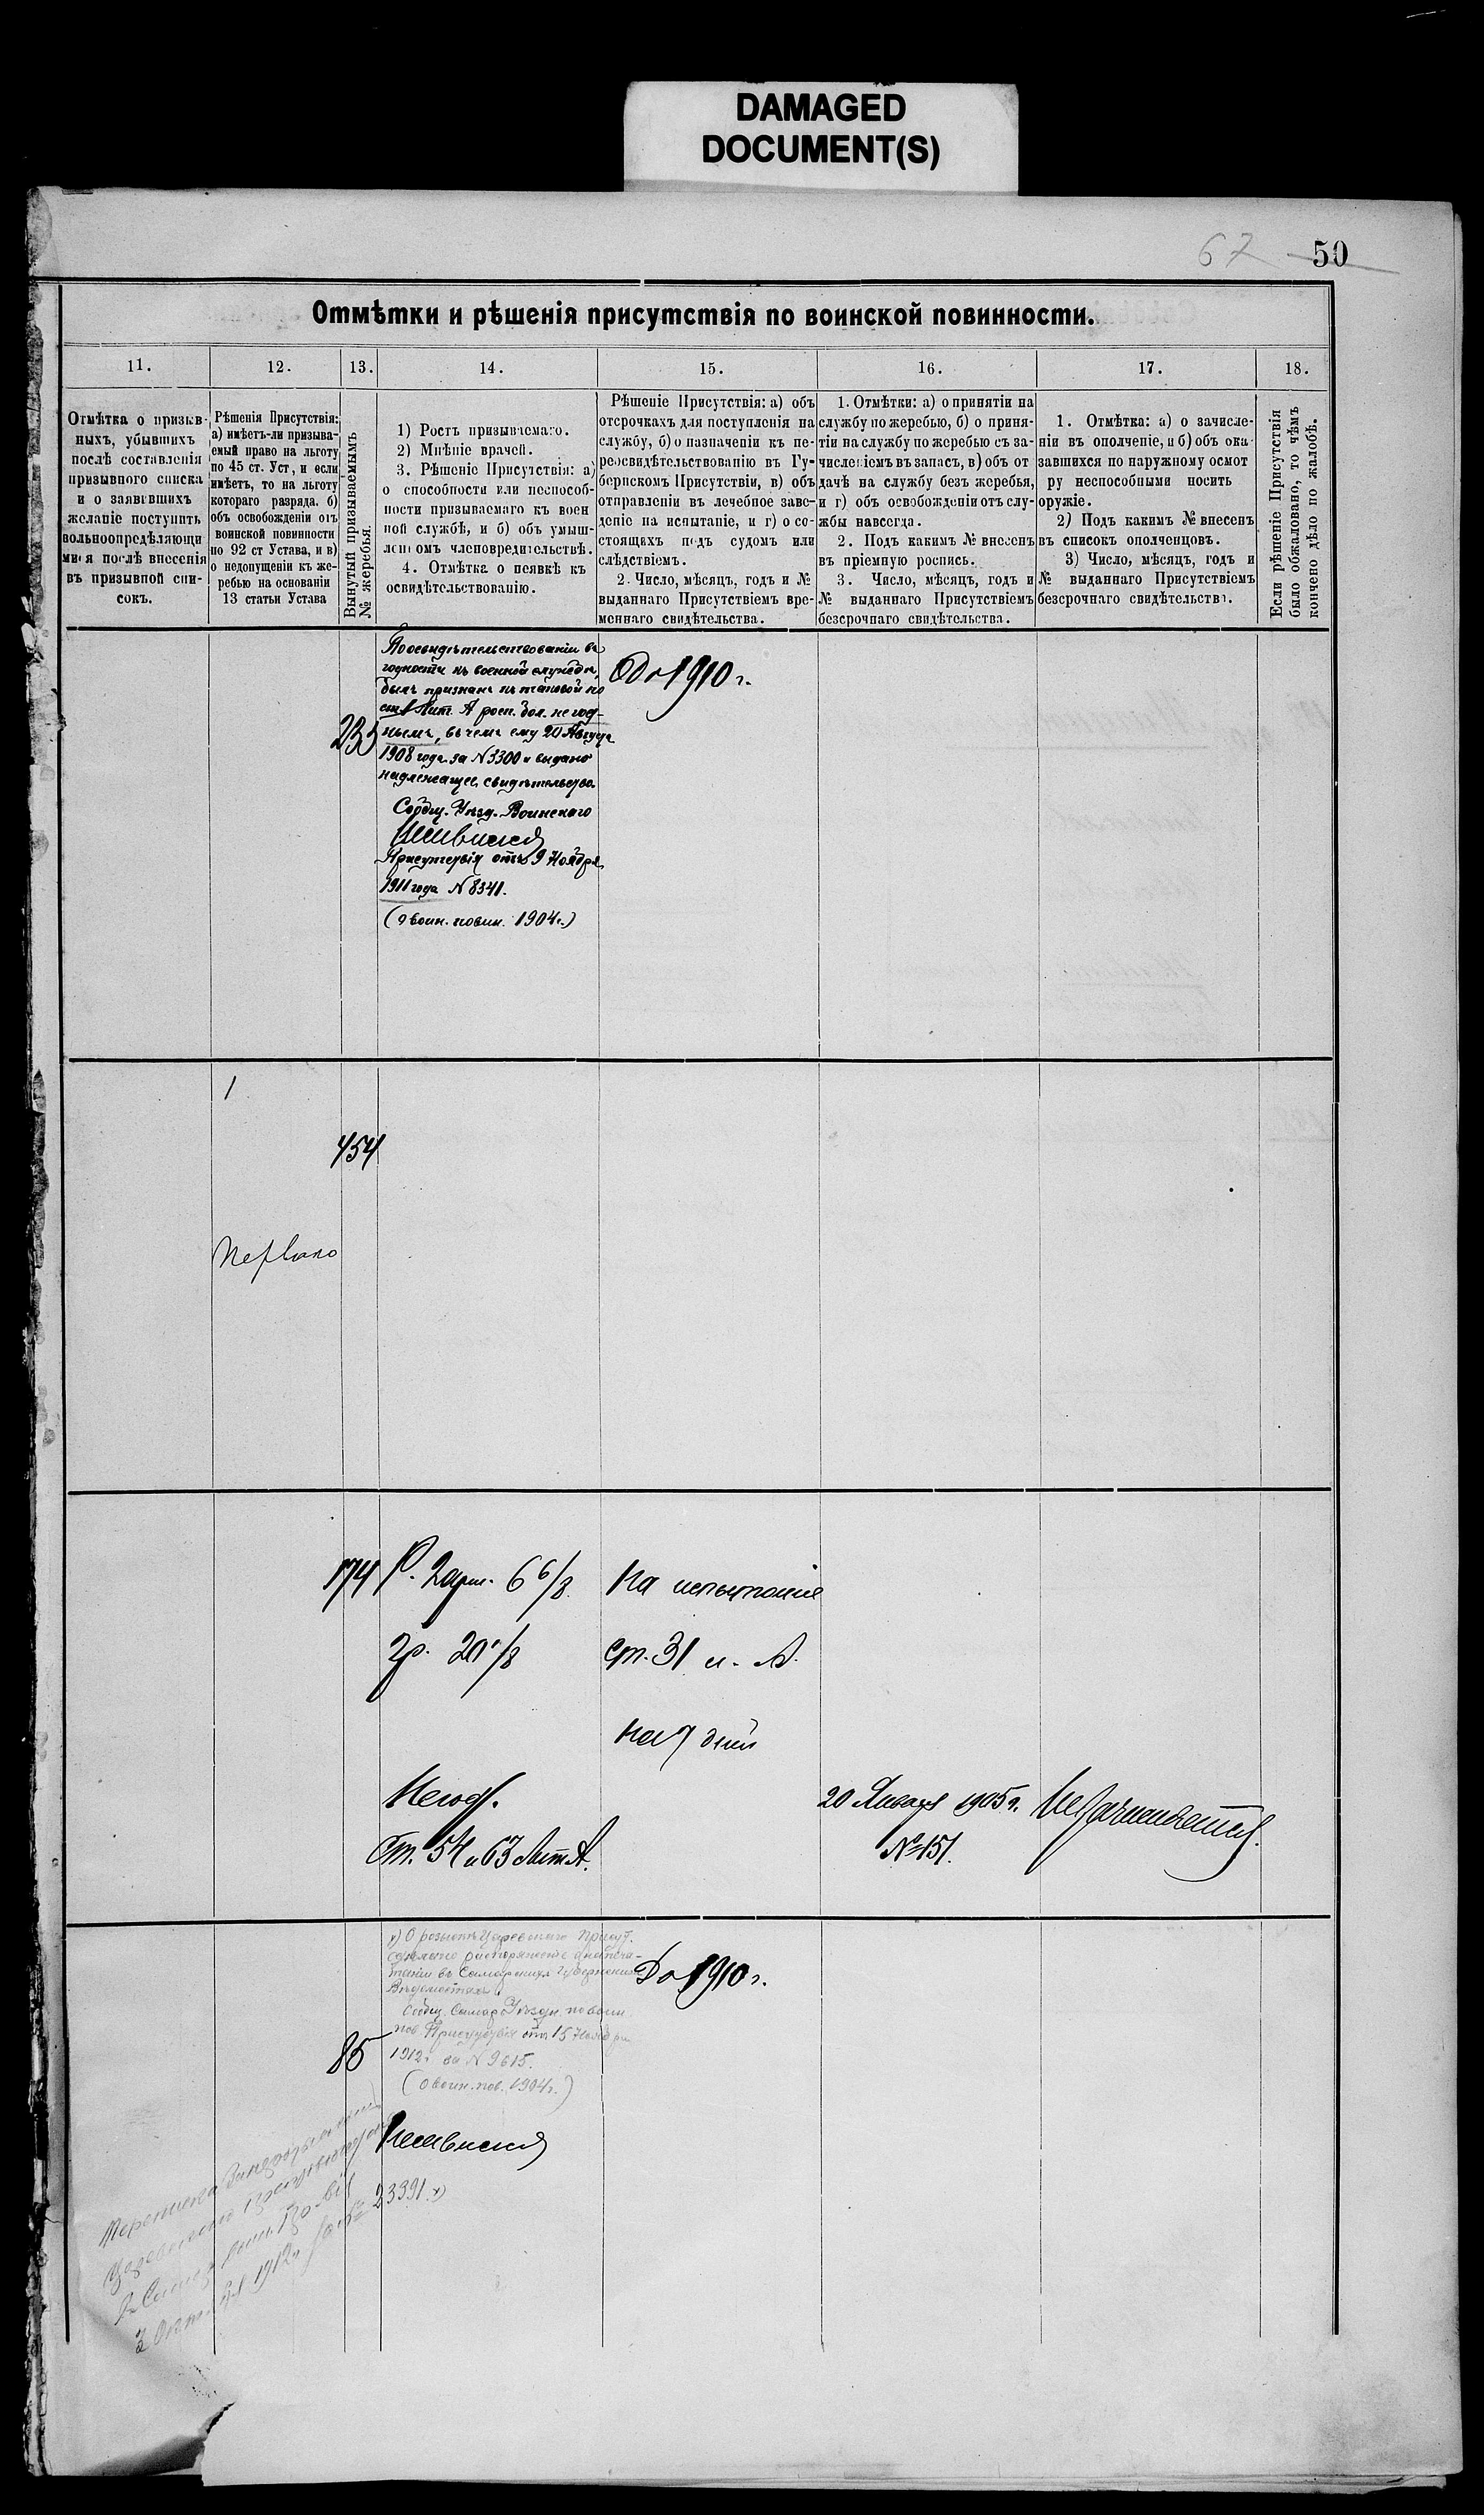 DAMAGED
DOCUMENT(S)
67 50
Отмѣтки и рѣшенія присутствія по воинской повинности.
11.
12.
13.
14.
15.
16.
17.
18.
Отмѣтка о призыв-
ныхъ, убывшихъ
послѣ составленія
призывного списка
и о заявившихъ
желаніе поступить
вольноопредѣляющи
мися послѣ внесенія
въ призывной спи-
сокъ.
Рѣшенія Присутствія:
а) имѣетъ-ли призыва-
емый право на льготу
по 45 ст. Уст, и если
имѣетъ, то на льготу
котораго разряда. б)
объ освобожденіи отъ
воинской повинности
по 92 ст Устава, и в)
о недопущеніи къ же-
ребью на основаніи
13 статьи Устава
Вынутый призываемымъ
№ жеребья.
1) Ростъ призываемаго.
2) Мнѣніе врачей.
3. Рѣшеніе Присутствія: а)
о способности или неспособ-
ности призываемаго къ воен
ной службѣ, и б) объ умыш-
леномъ членовредительствѣ.
4. Отмѣтка о неявкѣ къ
освидѣтельствованію.
Рѣшеніе Присутствія: а) объ
отсрочкахъ для поступленія на
службу, б) о назначеніи къ пе-
реосвидѣтельствованію въ Гу-
бернскомъ Присутствіи, в) объ
отправленіи въ лечебное заве-
деніе на испытаніе, и г) о со-
стоящахъ подъ судомъ или
слѣдствіемъ.
2. Число, мѣсяцъ, годъ и №
выданнаго Присутствіемъ вре-
меннаго свидѣтельства.
1. Отмѣтки: а) о принятіи на
службу по жеребью, б) о приня-
тіи на службу по жеребью съ за-
численіемъ въ запасъ, в) объ от
дачѣ на службу безъ жеребья,
и г) объ освобожденіи отъ слу-
жбы навсегда.
2. Подъ какимъ № внесенъ
въ пріемную роспись.
3. Число, мѣсяцъ, годъ и
№ выданнаго Присутствіемъ
безсрочнаго свидѣтельства.
1. Отмѣтка: а) о зачисле-
ніи въ ополченіе, и б) объ ока
завшихся по наружному осмот
ру неспособными носить
оружіе.
2) Подъ какимъ № внесенъ
въ списокъ ополченцовъ.
3) Число, мѣсяцъ, годъ и
№ выданнаго Присутствіемъ
безсрочнаго свидѣтельства.
Если рѣшеніе Присутствія
было обжаловано, то чѣмъ
кончено дѣло по жалобѣ.
235
По освидѣтельствованіи въ
годности къ военной службѣ,
былъ признанъ къ таковой по
ст. 1 Лит. А росп. бол. негод-
нымъ, въ чемъ ему 20 Августа
1908 года за N 3300 и выдано
надлежащее свидѣтельство.
Сообщ. Уѣзд. Воинскаго
Присутствія отъ 9 Ноября
1911 года N 8341.
(о воин. повин. 1904 г.)
До 1910 г.
1
454
174
Р. 2 арш. 6 6/8
гр. 20 1/8
На испытаніе
ст. 31 л. А.
на 7 дней
Негод.
Ст. 54 и 63 Лит А.
20 Января 1905 г.
№ 151.
Не зачисляется.
85
х) О розыскѣ Царевскаго Присут.
сдѣлано распоряженіе о напеча-
таніи въ Самарскихъ Губернскихъ
Вѣдомостяхъ
Сообщ. Самар. Уѣздн. по воин.
пов. Присутствія отъ 15 Ноября
1912 г. за N 9615.
(о воин. пов. 1904 г.)
До 1910 г.
3 Октября 1912 г. за № 23391. х)